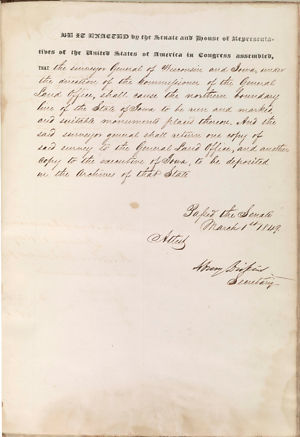 BE IT ENACTED by the Senate and House of Representa-
tives of the United States of America in Congress assembled,
THAT the surveyor General of Wisconsin and Iowa, under
the direction of the Commissioner of the General
Land Office, shall cause the northern boundary
line of the State of Iowa to be run and marked
and suitable monuments placed thereon. And the
said surveyor general shall return one copy of
said survey to the General Land Office, and another
copy to the executive of Iowa, to be deposited
in the Archives of that State
Passed the Senate
March 1st 1849
Attest
Secretary